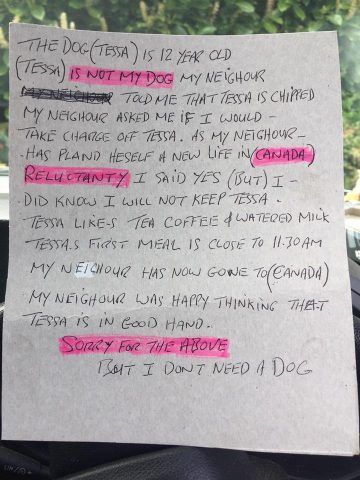 THE DOG (TESSA) IS 12 YEAR OLD
(TESSA) IS NOT MY DOG MY NEIGHOUR
MY NEIGHOUR TOLD ME THAT TESSA IS CHIPPED
MY NEIGHOUR ASKED ME IF I WOULD -
TAKE CHARGE OFF TESSA. AS MY NEIGHOUR -
HAS PLAND HESELF A NEW LIFE IN (CANADA)
RELUCTANTY I SAID YES (BUT) I -
DID KNOW I WILL NOT KEEP TESSA.
TESSA LIKE-S TEA COFFEE & WATERED MILK
TESSA.S FIRST MEAL IS CLOSE TO 11.30 AM
MY NEIGHOUR HAS NOW GONE TO (CANADA)
MY NEIGHOUR WAS HAPPY THINKING THAT
TESSA IS IN GOOD HAND.
SORRY FOR THE ABOVE
BUT I DONT NEED A DOG